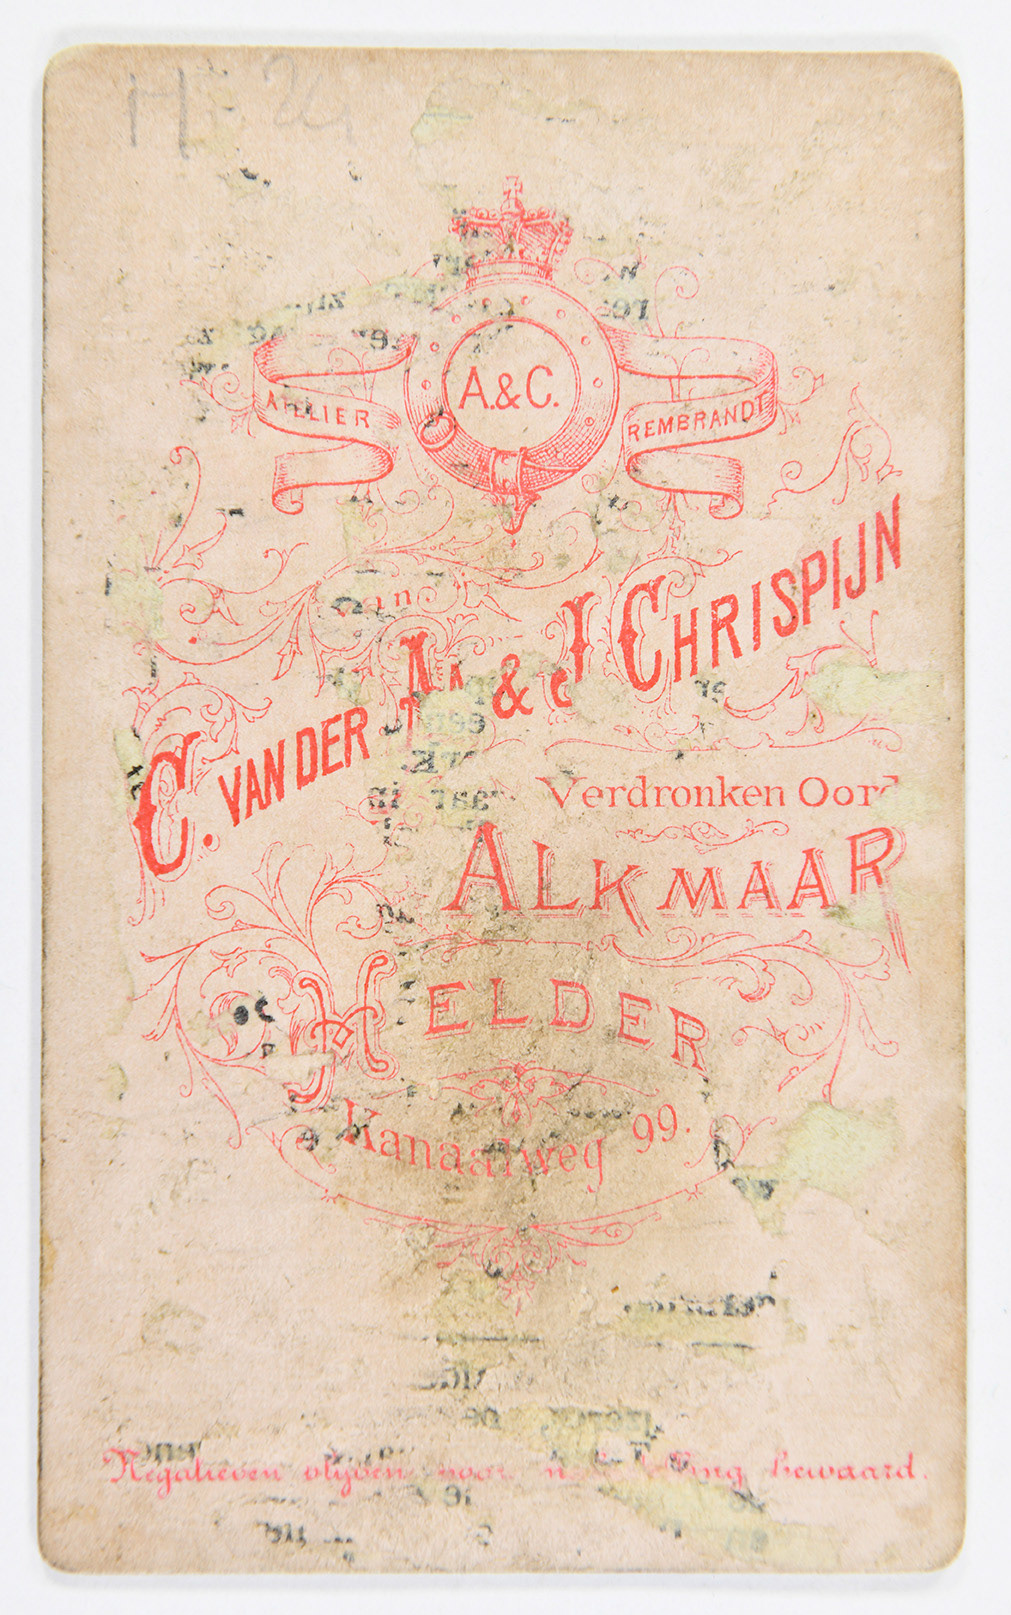 H. 24
A. & C.
ATELIER REMBRANDT
C. VAN DER AA & J CHRISPIJN
Verdronken Oord
ALKMAAR
HELDER
Kanaalweg 99.
Negatieven blijven voor bewaard.